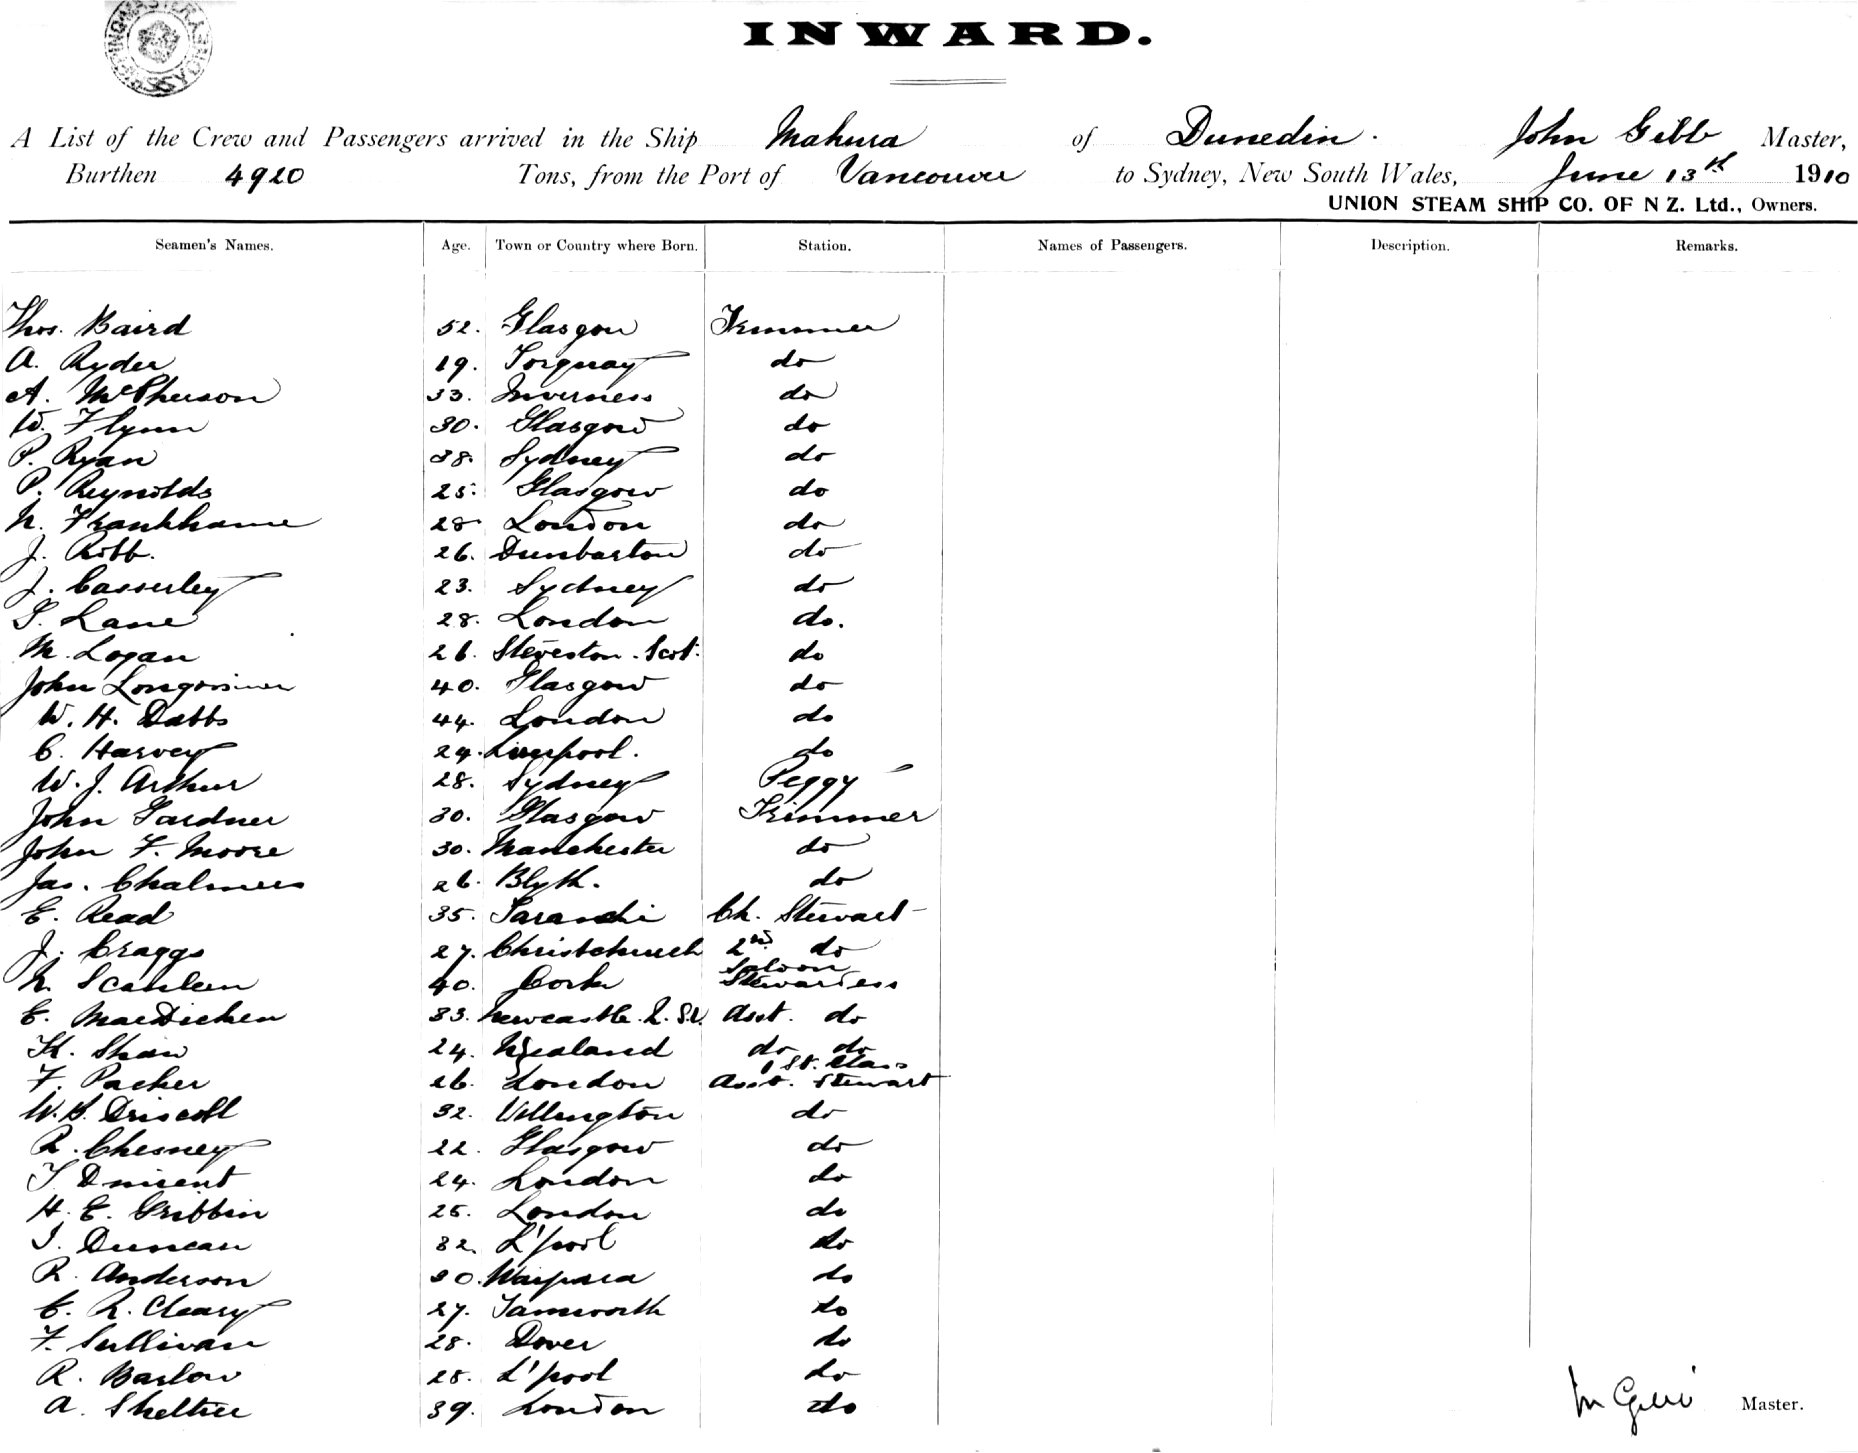 SHIPPING MASTER SYDNEY
INWARD.
A List of the Crew and Passengers arrived in the Ship Makura of Dunedin. John Gibb Master,
Burthen 4920 Tons, from the Port of Vancouver to Sydney, New South Wales, June 13th 1910
UNION STEAM SHIP CO. OF N Z. Ltd., Owners.
Seamen's Names. Age. Town or Country where Born. Station. Names of Passengers. Description. Remarks.
Thos. Baird 52. Glasgow Trimmer
A. Ryder 19. Torquay do
A. McPherson 33. Inverness do
W. Flynn 30. Glasgow do
P. Ryan 38. Sydney do
P. Reynolds 25. Glasgow do
N. Frankhame 28 London do
J. Robb. 26. Dunbarton do
J. Casserley 23. Sydney do
T. Lane 28. London do.
M. Logan 26. Steveston. Scot. do
John Longmuir 40. Glasgow do
W. H. Dabbs 44. London do
C. Harvey 24. Liverpool. do
W. J. Arthur 28. Sydney Peggy
John Gardner 30. Glasgow Trimmer
John F. Moore 30. Manchester do
Jas. Chalmers 26. Blyth. do
E. Read 35. Ch. Stewart
J. Craggs 27. Christchurch 2nd do
N. Scanlan 40. Cork Saloon Stewardess
E. MacDicken 33. Newcastle. N. S.W. Asst. do
K. Shaw 24. N Zealand do do
F. Packer 26. London 1st. Class Asst. Stewart
W. G. Driscoll 32. Willington do
R. Chesney 22. Glasgow do
T 24. London do
H. E. Gribbin 25. London do
J. Duncan 32. L'pool do
R. Anderson 30. Waipara do
C. R. Cleary 27. Tamworth do
F. Sullivan 28. Dover do
R. Barlow 28. L'pool do
A. 39. London do
Master.